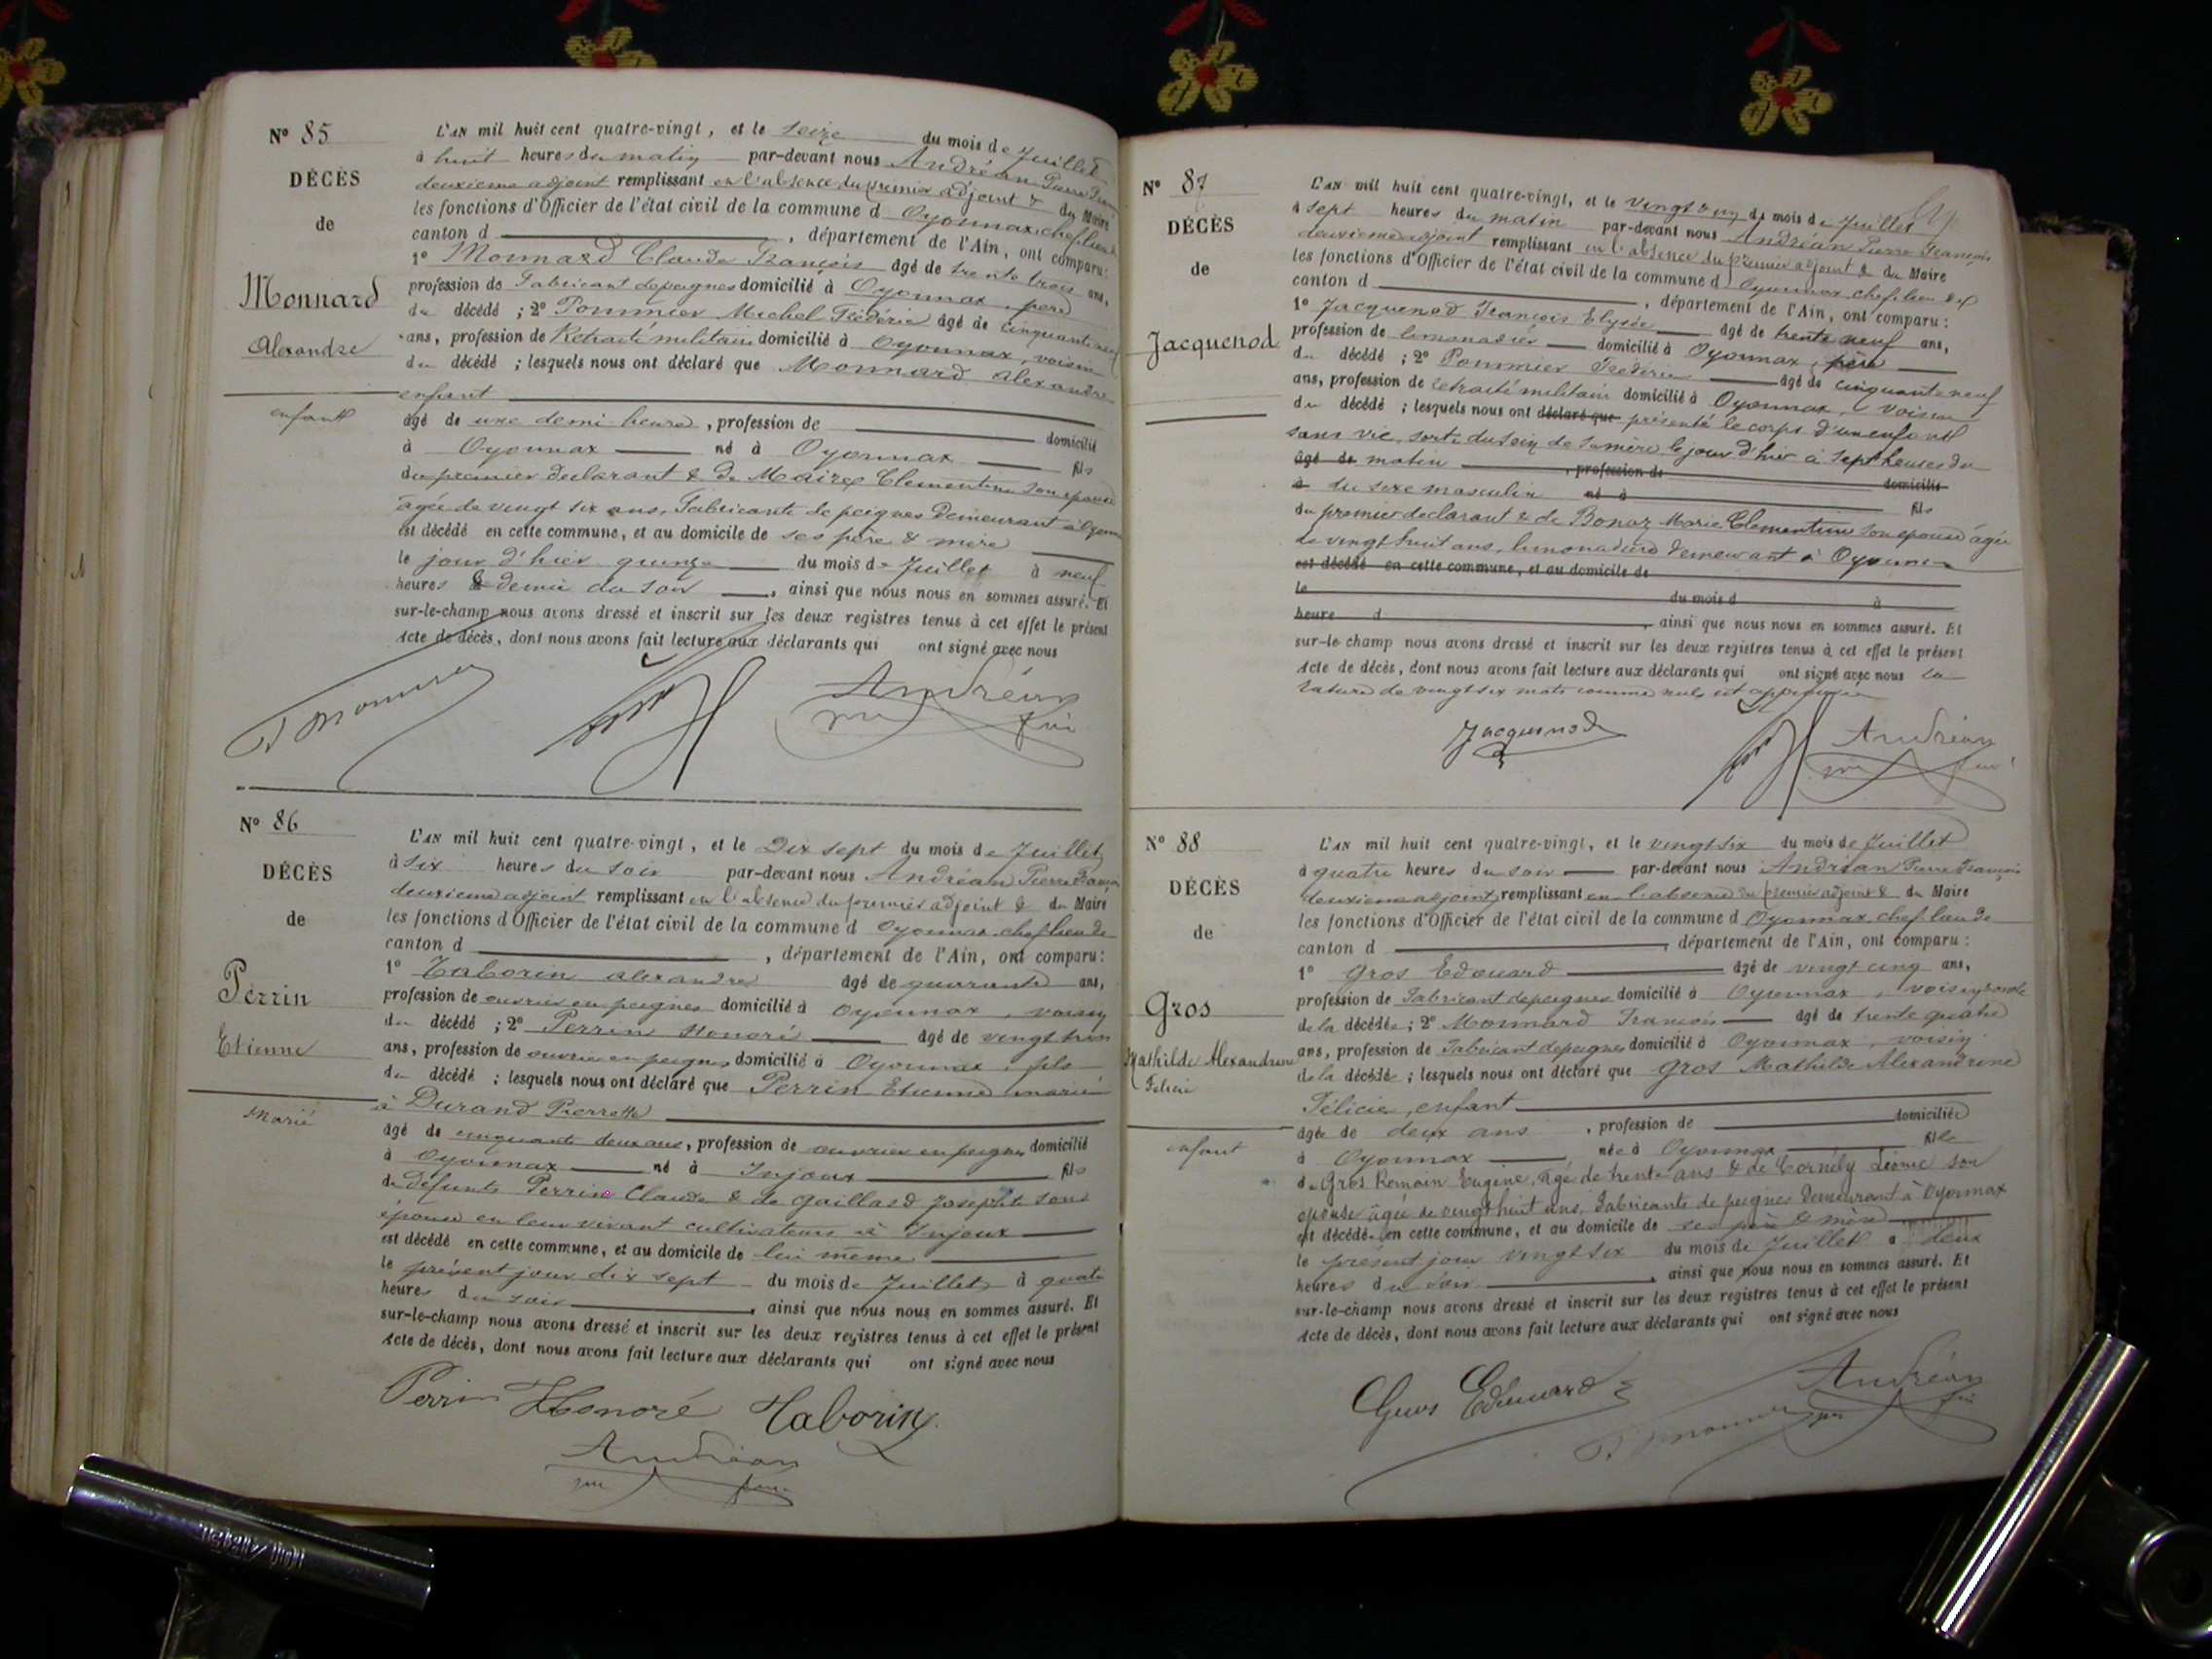 N° 85
DÉCÈS
de
Monnard
Alexandre
enfant
L'AN mil huit cent quatre-vingt, et le seize du mois de Juillet
à huit heures du matin par-devant nous Andréan Pierre
deuxieme adjoint remplissant en l'absence du premier adjoint & du Maire
les fonctions d'Officier de l'état civil de la commune d Oyonnax, chef lieu de
canton d , département de l'Ain, ont comparu:
1° Monnard Claude François âgé de trente trois ans,
profession de Fabricant de peignes domicilié à Oyonnax, père
du décédé ; 2° Pommier Michel Frédéric âgé de cinquante neuf
ans, profession de Retraité militaire domicilié à Oyonnax, voisin
du décédé ; lesquels nous ont déclaré que Monnard Alexandre
enfant
âgé de une demi heure, profession de domicilié
à Oyonnax né à Oyonnax fils
du premier declarant & de Maire Clementine son epouse
âgée de vingt six ans, Fabricante de peignes demeurant à Oyonnax
est décédé en cette commune, et au domicile de ses père & mère
le jour d'hier quinze du mois de Juillet à neuf
heures & demie du soir, ainsi que nous nous en sommes assuré. Et
sur-le-champ nous avons dressé et inscrit sur les deux registres tenus à cet effet le présent
Acte de décès, dont nous avons fait lecture aux déclarants qui ont signé avec nous
Andréan
N° 86
DÉCÈS
de
Perrin
Etienne
Marié
L'AN mil huit cent quatre-vingt, et le Dix sept du mois de Juillet
à six heures du soir par-devant nous Andréan Pierre François
deuxieme adjoint remplissant en l'absence du premier adjoint & du Maire
les fonctions d'Officier de l'état civil de la commune d Oyonnax chef lieu de
canton d , département de l'Ain, ont comparu:
1° Taborin alexandre âgé de quarante ans,
profession de ouvrier en peignes domicilié à Oyonnax, voisin
du décédé ; 2° Perrin Honoré âgé de vingt trois
ans, profession de ouvrier en peignes domicilié à Oyonnax, fils
du décédé ; lesquels nous ont déclaré que Perrin Etienne marié
à Durand Pierrette
âgé de cinquante deux ans, profession de ouvrier en peignes domicilié
à Oyonnax né à Injoux fils
de défunts Perrin Claude & de Gaillard Josephte son
épouse en leur vivant cultivateurs à Injoux
est décédé en cette commune, et au domicile de lui même
le présent jour dix sept du mois de Juillet à quatre
heures du soir, ainsi que nous nous en sommes assuré. Et
sur-le-champ nous avons dressé et inscrit sur les deux registres tenus à cet effet le présent
Acte de décès, dont nous avons fait lecture aux déclarants qui ont signé avec nous
Perrin Honoré Taborin
Andréan
N° 87
DÉCÈS
de
Jacquenod
L'AN mil huit cent quatre-vingt, et le vingt du mois de Juillet
à sept heures du matin par-devant nous Andréan Pierre François
deuxieme adjoint remplissant en l'absence du premier adjoint & du Maire
les fonctions d'Officier de l'état civil de la commune d Oyonnax chef lieu de
canton d , département de l'Ain, ont comparu:
1° Jacquenod François Elysée âgé de trente neuf ans,
profession de limonadier domicilié à Oyonnax, père
du décédé ; 2° Pommier Frederic âgé de cinquante neuf
ans, profession de retraité militaire domicilié à Oyonnax, voisin
du décédé ; lesquels nous ont déclaré que présenté le corps d'un enfant
sans vie, sorti du sein de sa mère le jour d'hier à sept heures du
âgé de matin , profession de domicilié
à du sexe masculin né à fils
du premier declarant & de Bonaz Marie Clementine son epouse âgée
de vingt huit ans, limonadière demeurant à Oyonnax
est décédé en cette commune, et au domicile de
le du mois d à
heure d , ainsi que nous nous en sommes assuré. Et
sur-le champ nous avons dressé et inscrit sur les deux registres tenus à cet effet le présent
Acte de décès, dont nous avons fait lecture aux déclarants qui ont signé avec nous la
rature de vingt six mots comme nuls est approuvée
Jacquenod
Andréan
N° 88
DÉCÈS
de
Gros
Mathilde Alexandrine
Felicie
enfant
L'AN mil huit cent quatre-vingt, et le vingt six du mois de Juillet
à quatre heures du soir par-devant nous Andréan Pierre François
deuxieme adjoint remplissant en l'absence du premier adjoint & du Maire
les fonctions d'Officier de l'état civil de la commune d Oyonnax chef lieu de
canton d , département de l'Ain, ont comparu:
1° Gros Edouard âgé de vingt cinq ans,
profession de Fabricant de peignes domicilié à Oyonnax, voisin
de la décédée ; 2° Monnard François âgé de trente quatre
ans, profession de Fabricant de peignes domicilié à Oyonnax, voisin
de la décédée ; lesquels nous ont déclaré que Gros Mathilde Alexandrine
Félicie, enfant
âgée de deux ans , profession de domiciliée
à Oyonnax née à Oyonnax fille
de Gros Romain Eugène, âgé de trente ans & de Cornély Léonie son
epouse âgée de vingt huit ans, Fabricants de peignes demeurant à Oyonnax
est décédée en cette commune, et au domicile de ses père & mère
le présent jour vingt six du mois de Juillet à deux
heures du soir , ainsi que nous nous en sommes assuré. Et
sur-le-champ nous avons dressé et inscrit sur les deux registres tenus à cet effet le présent
Acte de décès, dont nous avons fait lecture aux déclarants qui ont signé avec nous
Gros Edouard
Andréan